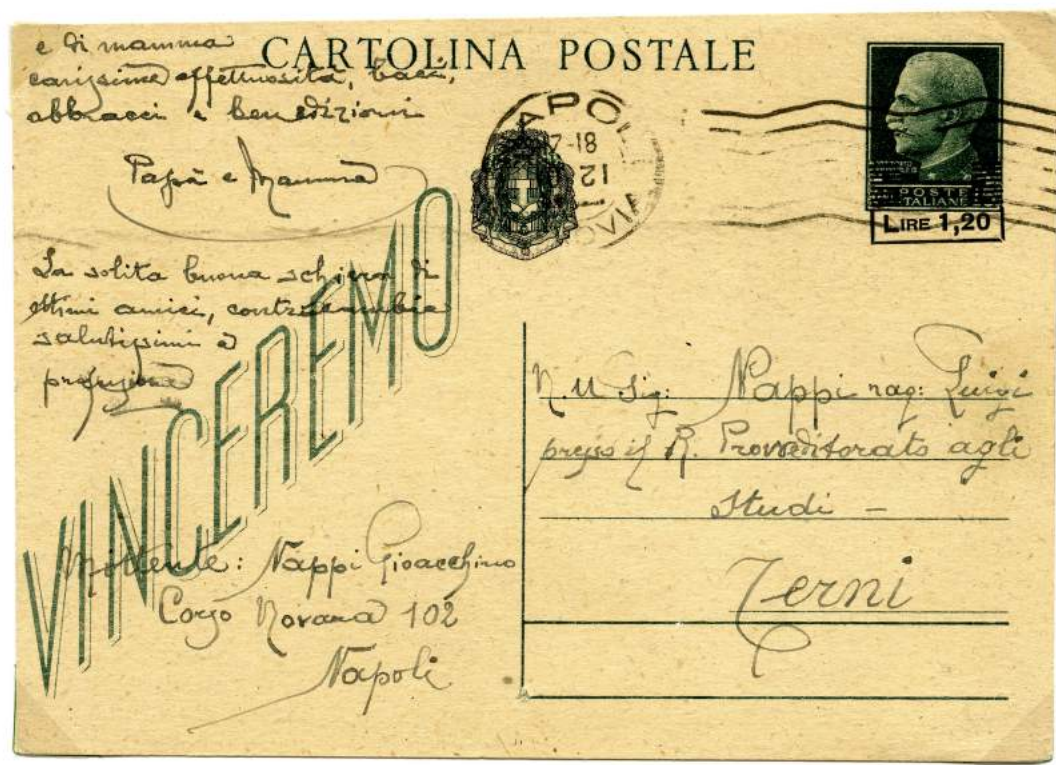 CARTOLINA POSTALE
e di mamma
carissime affettuosità, baci,
abbracci e benedizioni
Papà e Mamma
La solita buona schiera di
ottimi amici, contraccambia
salutissimi a
profusione
VINCEREMO
Mittente: Nappi Gioacchino
Corso Novara 102
Napoli
POSTE
ITALIANE
LIRE 1,20
N. U Sig: Nappi rag: Luigi
presso il R. Provveditorato agli
Studi -
Terni